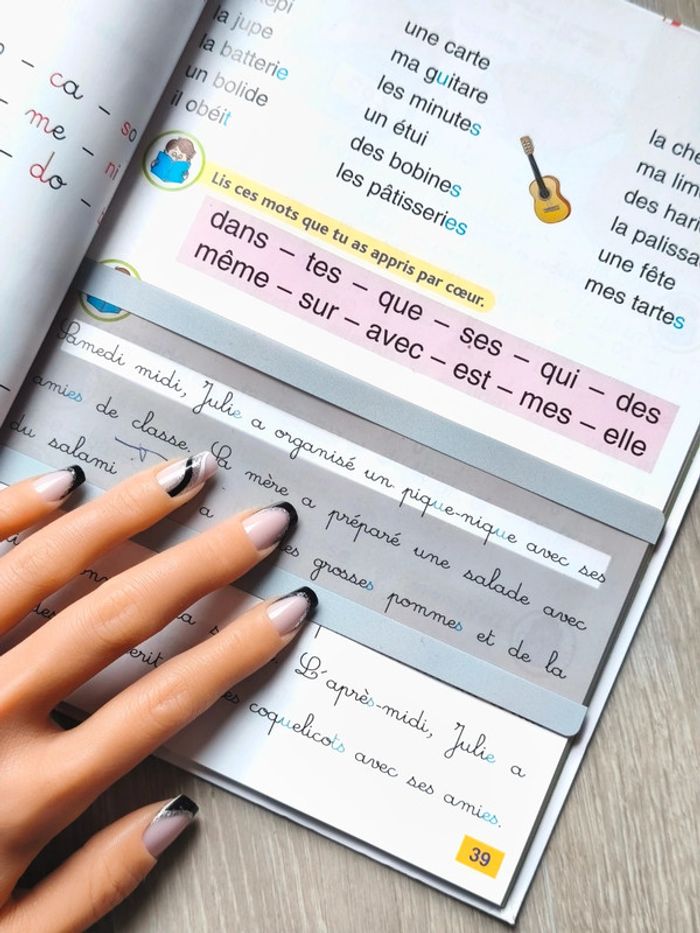 ca – so
me – ni
do –
la jupe
la batterie
un bolide
il obéit
une carte
ma guitare
les minutes
un étui
des bobines
les pâtisseries
ma
des
la palissa
une fête
mes tartes
Lis ces mots que tu as appris par cœur.
dans – tes – que – ses – qui – des
même – sur – avec – est – mes – elle
Samedi midi, Julie a organisé un pique-nique avec ses
amies de classe. Sa mère a préparé une salade avec
du salami a des grosses pommes et de la
L'après-midi, Julie a
coquelicots avec ses amies.
39